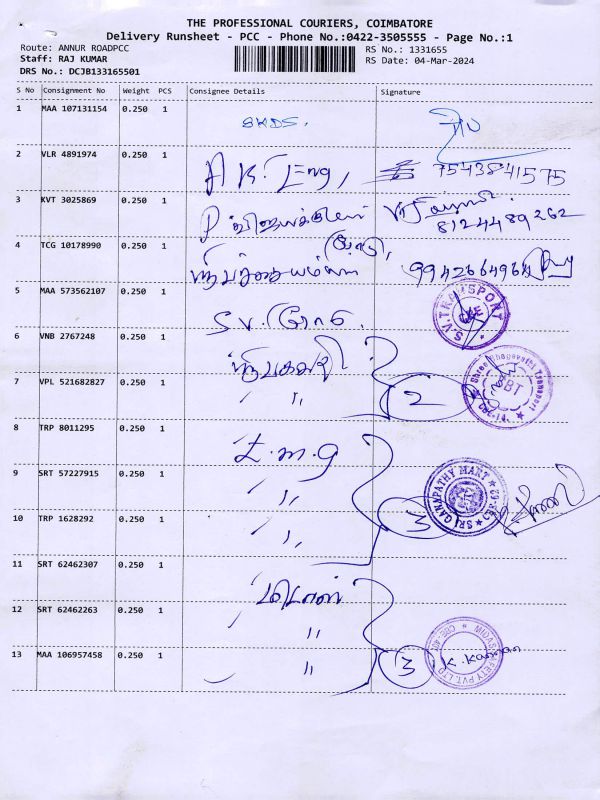 THE PROFESSIONAL COURIERS, COIMBATORE
Delivery Runsheet - PCC - Phone No.:0422-3505555 - Page No.:1
Route: ANNUR ROADPCC
RS No.: 1331655
Staff: RAJ KUMAR
RS Date: 04-Mar-2024
DRS No.: DCJB133165501
S No Consignment No Weight PCS Consignee Details Signature
1 MAA 107131154 0.250 1 SKDS.
2 VLR 4891974 0.250 1 A K. Eng, 7543841575
3 KVT 3025869 0.250 1 8124489262
4 TCG 10178990 0.250 1
5 MAA 573562107 0.250 1 S.V. S.V. TRANSPORT CBE
6 VNB 2767248 0.250 1
7 VPL 521682827 0.250 1 " 2 Shree Bhagavathi Transport SBT
8 TRP 8011295 0.250 1 L.M.G
9 SRT 57227915 0.250 1 " 3 SRI GANAPATHY MART
10 TRP 1628292 0.250 1 "
11 SRT 62462307 0.250 1
12 SRT 62462263 0.250 1 "
13 MAA 106957458 0.250 1 " 3 K. Kannan MIDAS SAFETY PVT. LTD